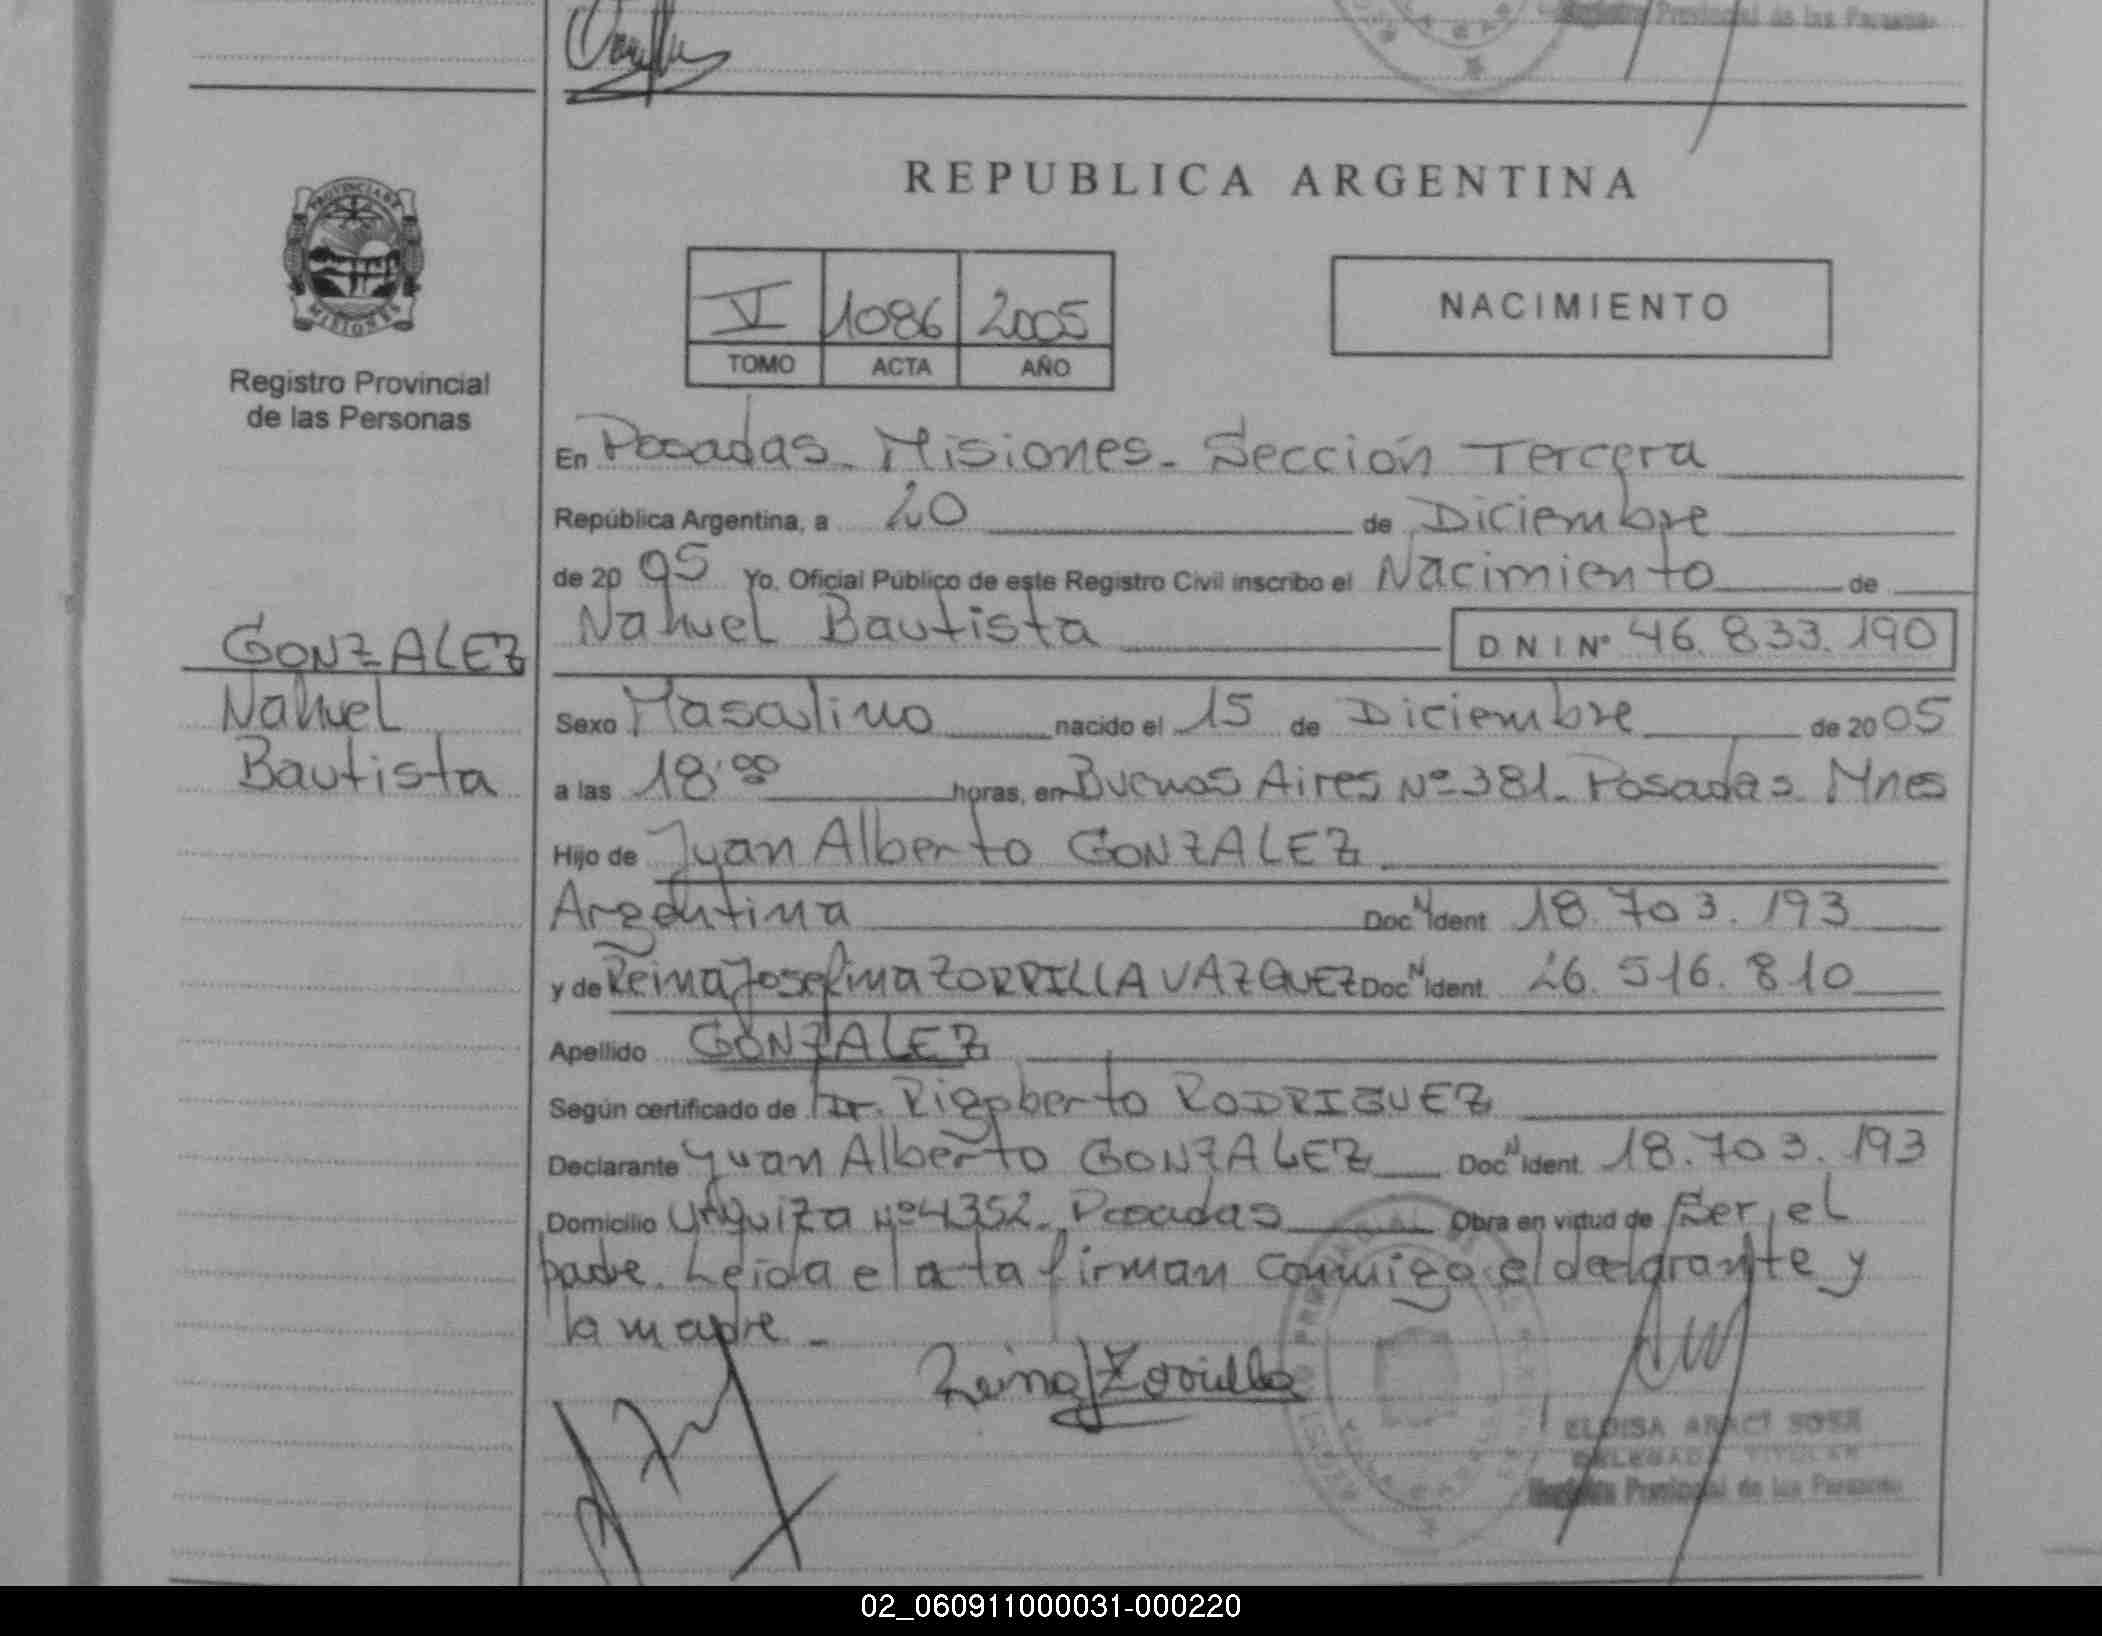 Registro Provincial de las Personas
REPUBLICA ARGENTINA
PROVINCIA DE
MISIONES
Registro Provincial
de las Personas
VI 1086 2005
TOMO ACTA AÑO
NACIMIENTO
En Posadas - Misiones - Sección Tercera
República Argentina, a 20 de Diciembre
de 20 05 Yo, Oficial Público de este Registro Civil inscribo el Nacimiento de
Nahuel Bautista DNI Nº 46.833.190
GONZALEZ
Nahuel
Bautista
Sexo Masculino nacido el 15 de Diciembre de 20 05
a las 18:00 horas, en Buenos Aires Nº 381 - Posadas - Mnes
Hijo de Juan Alberto GONZALEZ
Argentina Doc N Ident 18.703.193
y de Reina Josefina ZORRILLA VAZQUEZ Doc N Ident. 26.516.810
Apellido GONZALEZ
Según certificado de Dr. Rigoberto RODRIGUEZ
Declarante Juan Alberto GONZALEZ Doc N Ident. 18.703.193
Domicilio Urquiza Nº 4352 - Posadas Obra en virtud de Ser el
padre. Leida el acta firman conmigo el declarante y
la madre -
Reina Zorrilla
ELOISA ARACI SOSA
DELEGADA TITULAR
Registro Provincial de las Personas
02_060911000031-000220